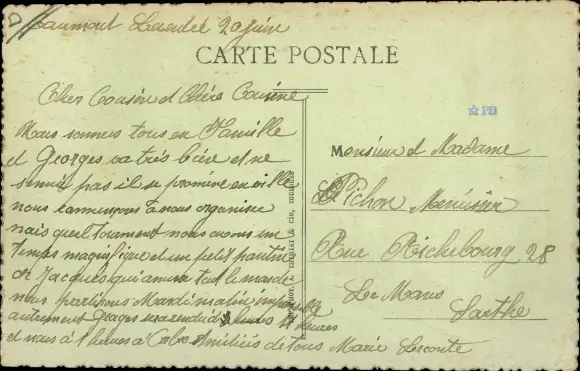 Beaumont Vendredi 20 Juin
CARTE POSTALE
Cher Cousin et Chère Cousine
Nous sommes tous en Famille
et Georges va très bien et ne
pas il se promène en ville
nous commençons à nous organiser
mais quel tourment nous avons un
temps magnifique et un petit pantin
de Jacques qui amuse tout le monde
nous partirons Mardi matin impossible
autrement Georges sera rendu à heures
et nous à 1 heures à amitiés de tous Marie Leconte
☆PB
Monsieur et Madame
Pichon Menuisier
Rue Richebourg 28
Le Mans
Sarthe